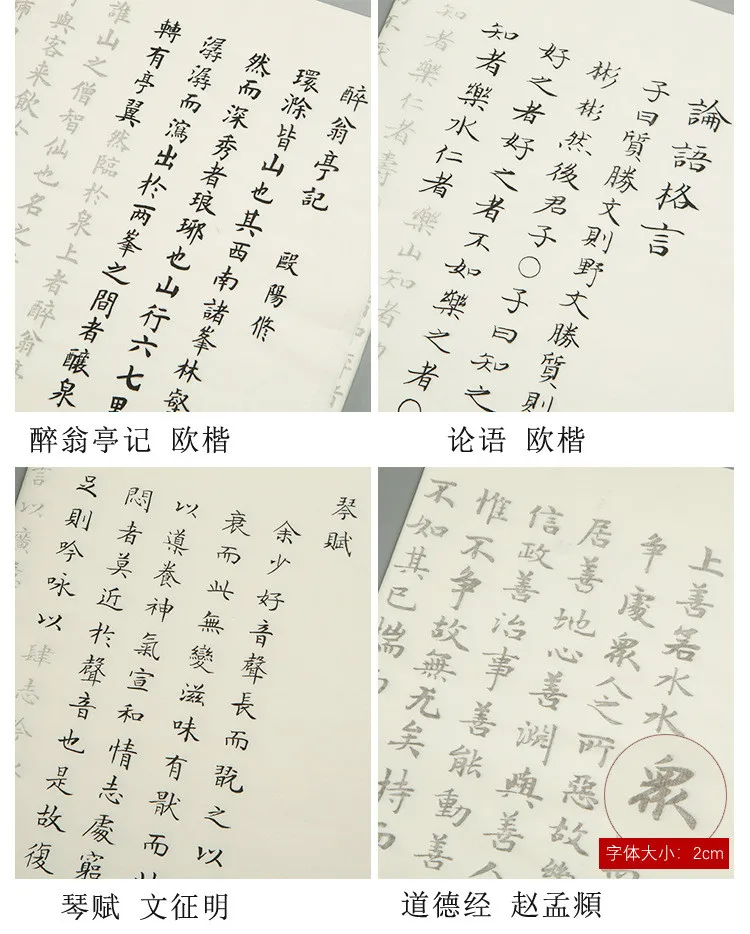 醉翁亭記 歐陽脩
環滁皆山也其西南諸峯林壑
然而深秀者琅琊也山行六七里
潺潺而瀉出於兩峯之間者釀泉
轉有亭翼然臨於泉上者醉翁亭
誰山之僧智仙也名之
與客来飲於
醉翁亭记 欧楷
論語格言
子曰質勝文則野文勝質則
彬彬然後君子○子曰知之
好之者好之者不如樂之者○
知者樂水仁者樂山知者
知者樂仁者壽
论语 欧楷
琴賦
余少好音聲長而翫之以
衰而此無變滋味有猒而
以導養神氣宣和情志處窮
悶者莫近於聲音也是故復
足則吟咏以肆志吟
言以廣
琴赋 文征明
上善若水水
争處衆人之所惡故
居善地心善淵與善人
信政善治事善能動善
惟不争故無尤矣持而
不如其已揣而
衆
字体大小：2cm
道德经 赵孟頫